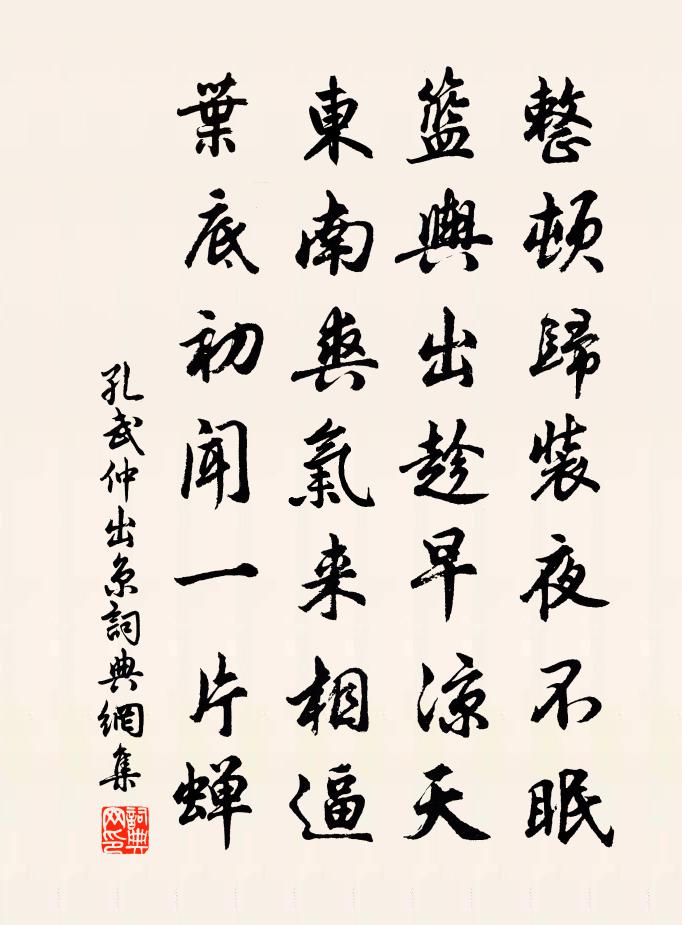 整頓歸裝夜不眠
籃輿出趁早涼天
東南爽氣来相逼
葉底初聞一片蝉
孔武仲出京詞典網集
詞典网印